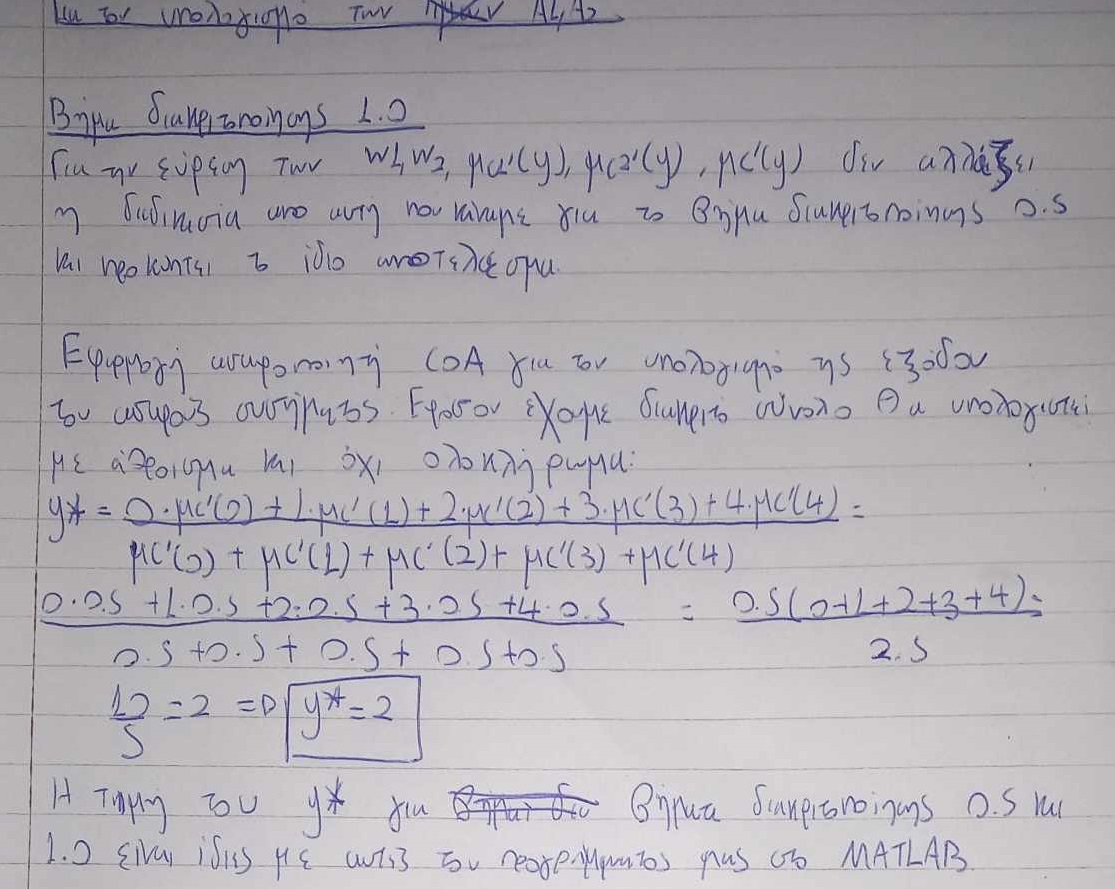 Για τον υπολογισμό των A1, A2
Βήμα διακριτοποίησης 1.0
Για την εύρεση των W1, W2, μc1'(y), μc2'(y), μc'(y) δεν αλλάζει
η διαδικασία απο αυτή που κάναμε για το βήμα διακριτοποίησης 0.5
και προκύπτει το ίδιο αποτέλεσμα.
Εφαρμογή ασαφοποιητή COA για τον υπολογισμό της εξόδου
του ασαφούς συστήματος. Εφόσον έχουμε διακριτό σύνολο θα υπολογιστεί
με άθροισμα και όχι ολοκλήρωμα:
y* = 0·μc'(0) + 1·μc'(1) + 2·μc'(2) + 3·μc'(3) + 4·μc'(4) =
μc'(0) + μc'(1) + μc'(2) + μc'(3) + μc'(4)
0·0.5 + 1·0.5 + 2·0.5 + 3·0.5 + 4·0.5 = 0.5(0+1+2+3+4) =
0.5 + 0.5 + 0.5 + 0.5 + 0.5 2.5
10/5 = 2 => y* = 2
Η τιμή του y* για βήματα διακριτοποίησης 0.5 και
1.0 είναι ίδιες με αυτές του προγράμματος μας στο MATLAB.